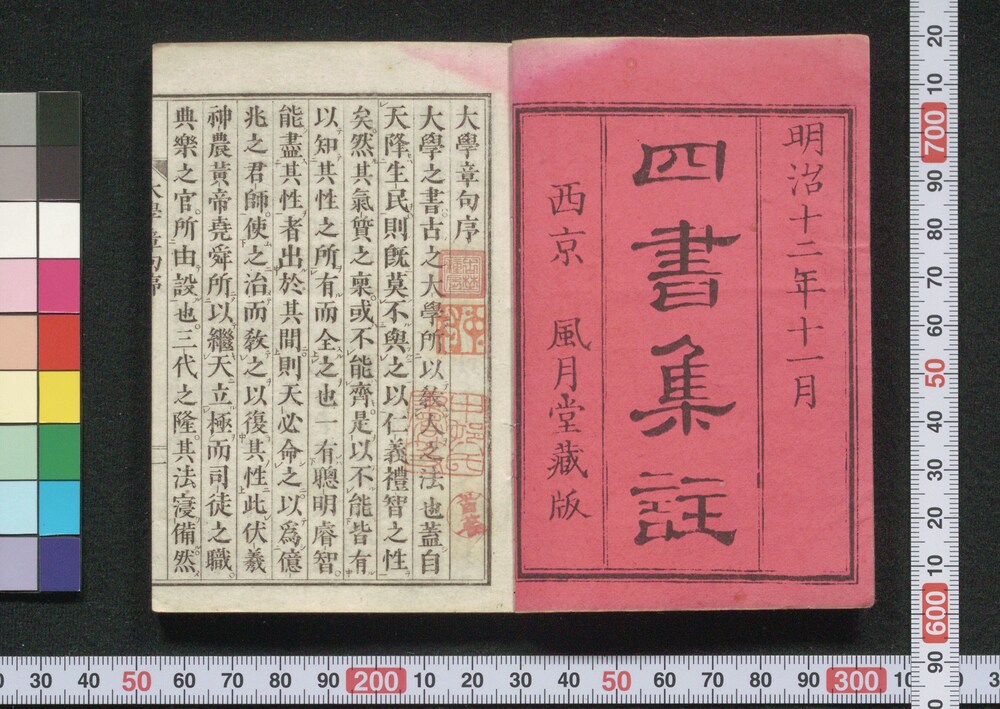 明治十二年十一月
四書集註
西京 風月堂藏版
大學章句序
大學之書古之大學所以敎人之法也蓋自
天降生民則旣莫不與之以仁義禮智之性
矣然其氣質之稟或不能齊是以不能皆有
以知其性之所有而全之也一有聰明睿智
能盡其性者出於其間則天必命之以爲億
兆之君師使之治而敎之以復其性此伏羲
神農黃帝堯舜所以繼天立極而司徒之職
典樂之官所由設也三代之隆其法寖備然
20
10
700
90
80
70
60
50
40
30
20
10
600
90
30 40 50 60 70 80 90 200 10 20 30 40 50 60 70 80 90 300 10